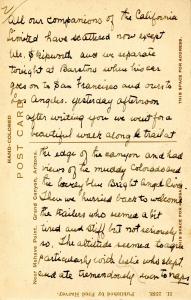 All our companions of the California
Limited have scattered now except
Mr. Skipworth and we separate
tonight at Barstow when his car
goes on to San Francisco and ours to
Los Angeles. Yesterday afternoon
after writing you we went for a
beautiful walk along the trail at
the edge of the canyon and had
views of the muddy Colorado and
the lovely blue Bright Angel Creek.
Then we hurried back to welcome
the riders who seemed a bit
tired and stiff but not seriously
so. The altitude seemed to agree
particularly with Leslie who slept
and ate tremendously even to naps
POST CARD
HAND-COLORED
THIS SPACE FOR ADDRESS.
Near Grand View Point, Grand Canyon, Arizona.
H. 2538. Published by Fred Harvey